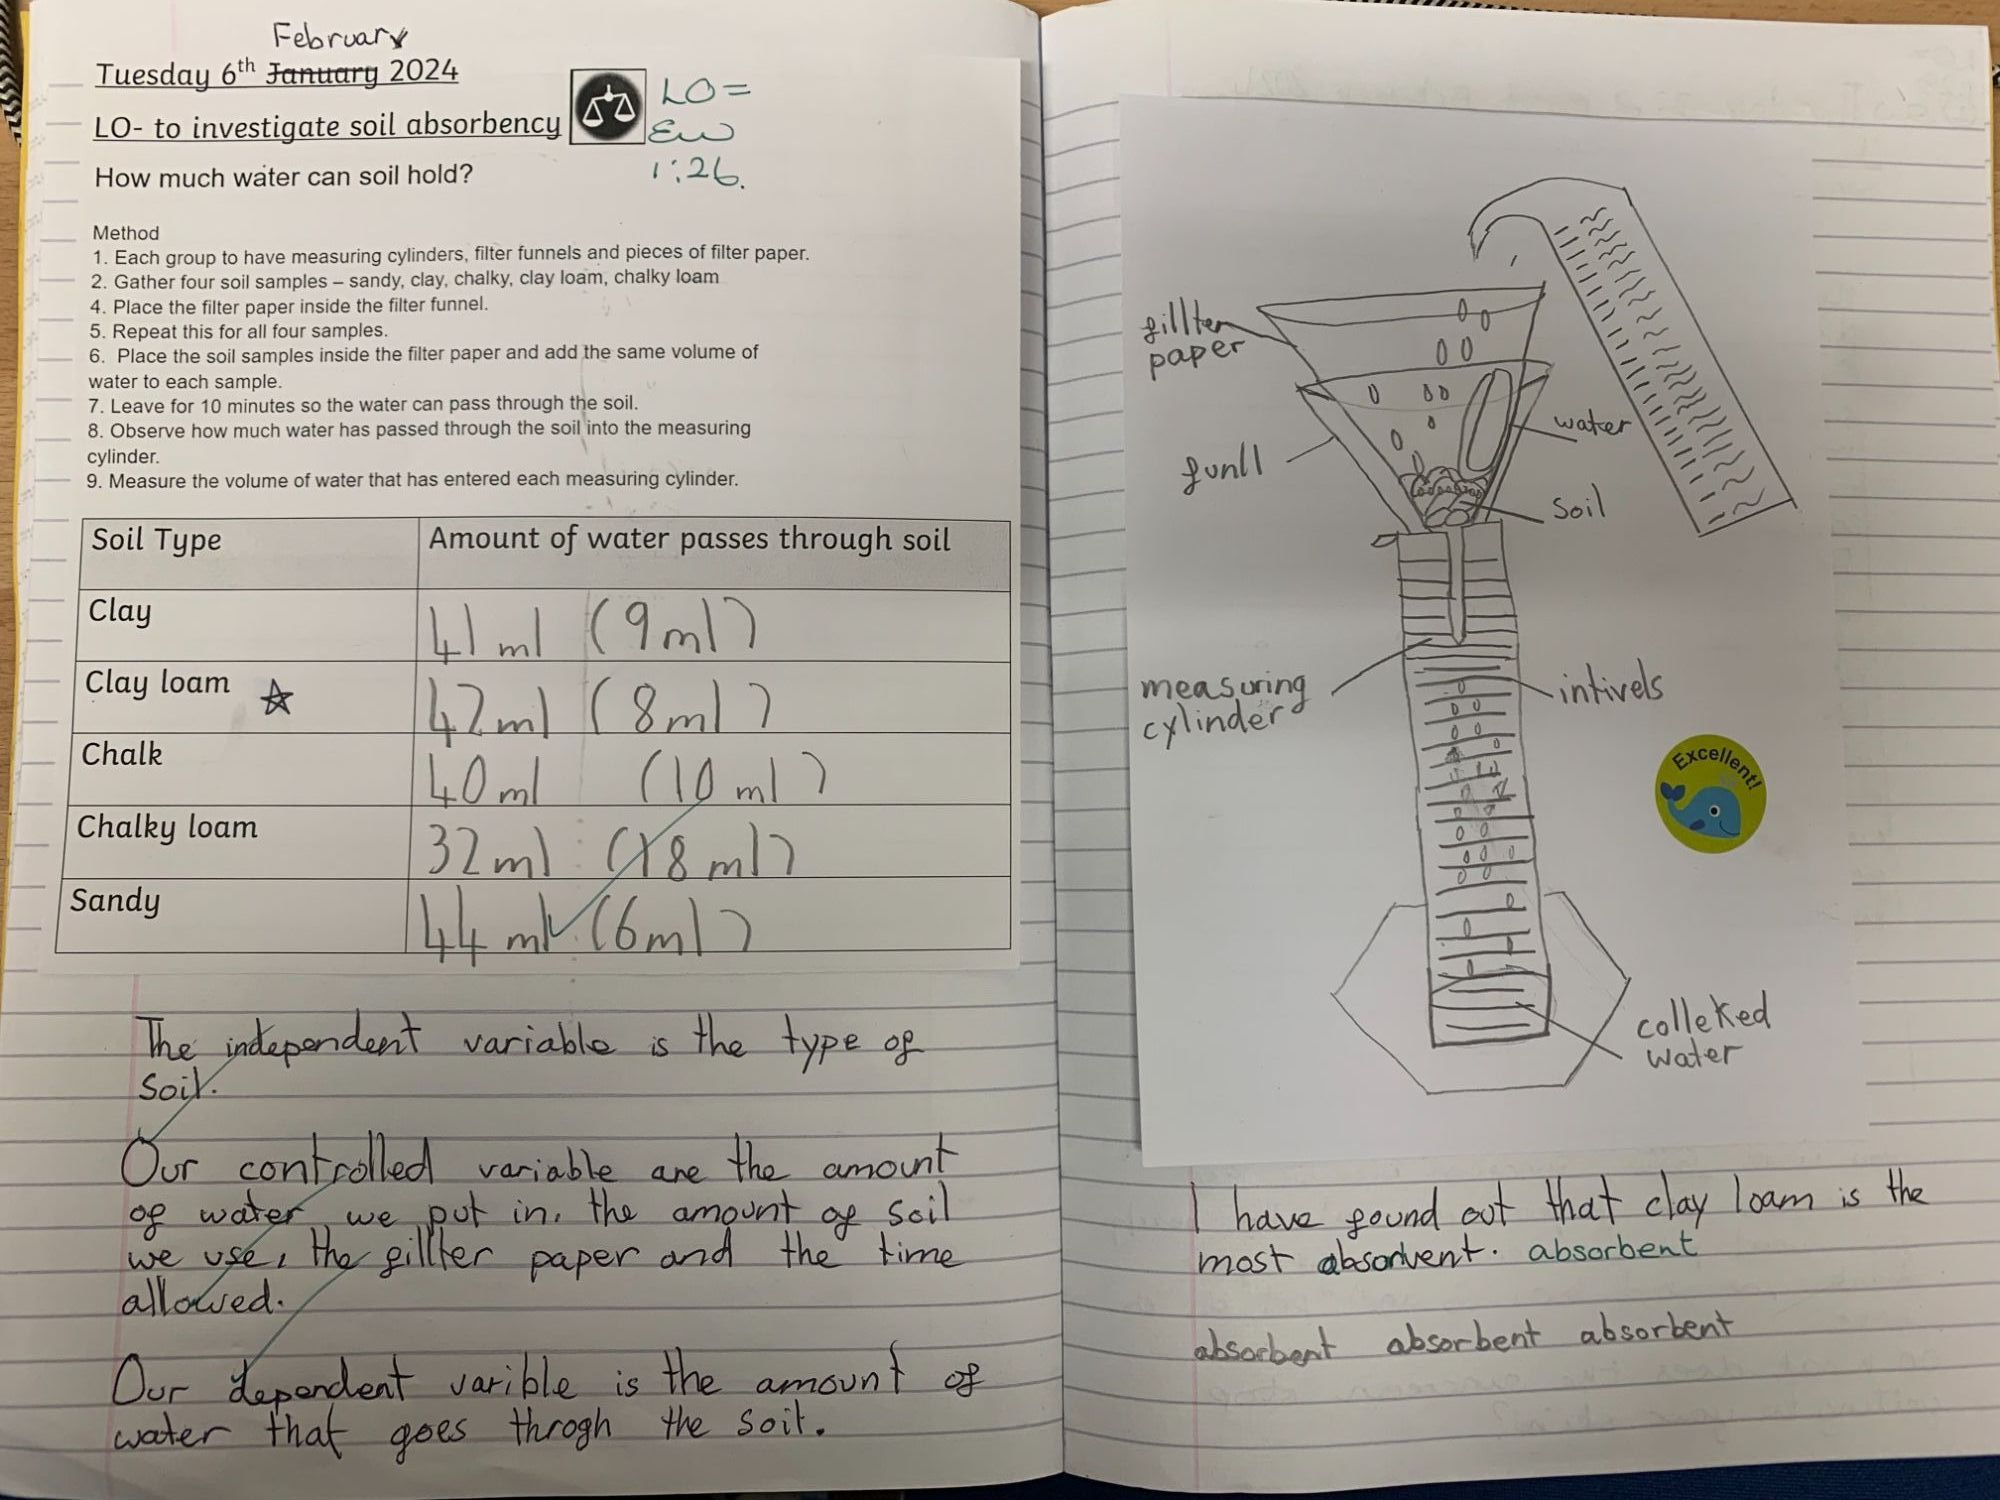 February
Tuesday 6th January 2024
LO- to investigate soil absorbency
LO=
EW
1:26.
How much water can soil hold?
Method
1. Each group to have measuring cylinders, filter funnels and pieces of filter paper.
2. Gather four soil samples – sandy, clay, chalky, clay loam, chalky loam
4. Place the filter paper inside the filter funnel.
5. Repeat this for all four samples.
6. Place the soil samples inside the filter paper and add the same volume of
water to each sample.
7. Leave for 10 minutes so the water can pass through the soil.
8. Observe how much water has passed through the soil into the measuring
cylinder.
9. Measure the volume of water that has entered each measuring cylinder.
Soil Type Amount of water passes through soil
Clay 41 ml (9ml)
Clay loam 42ml (8ml)
Chalk 40ml (10 ml)
Chalky loam 32ml (18ml)
Sandy 44 ml (6ml)
The independent variable is the type of
soil.
Our controlled variable are the amount
of water we put in, the amount of soil
we use, the fillter paper and the time
allowed.
Our dependent varible is the amount of
water that goes throgh the soil.
fillter
paper
funll
water
soil
measuring
cylinder
intivels
Excellent!
colleked
water
I have found out that clay loam is the
most absorvent. absorbent
absorbent absorbent absorbent